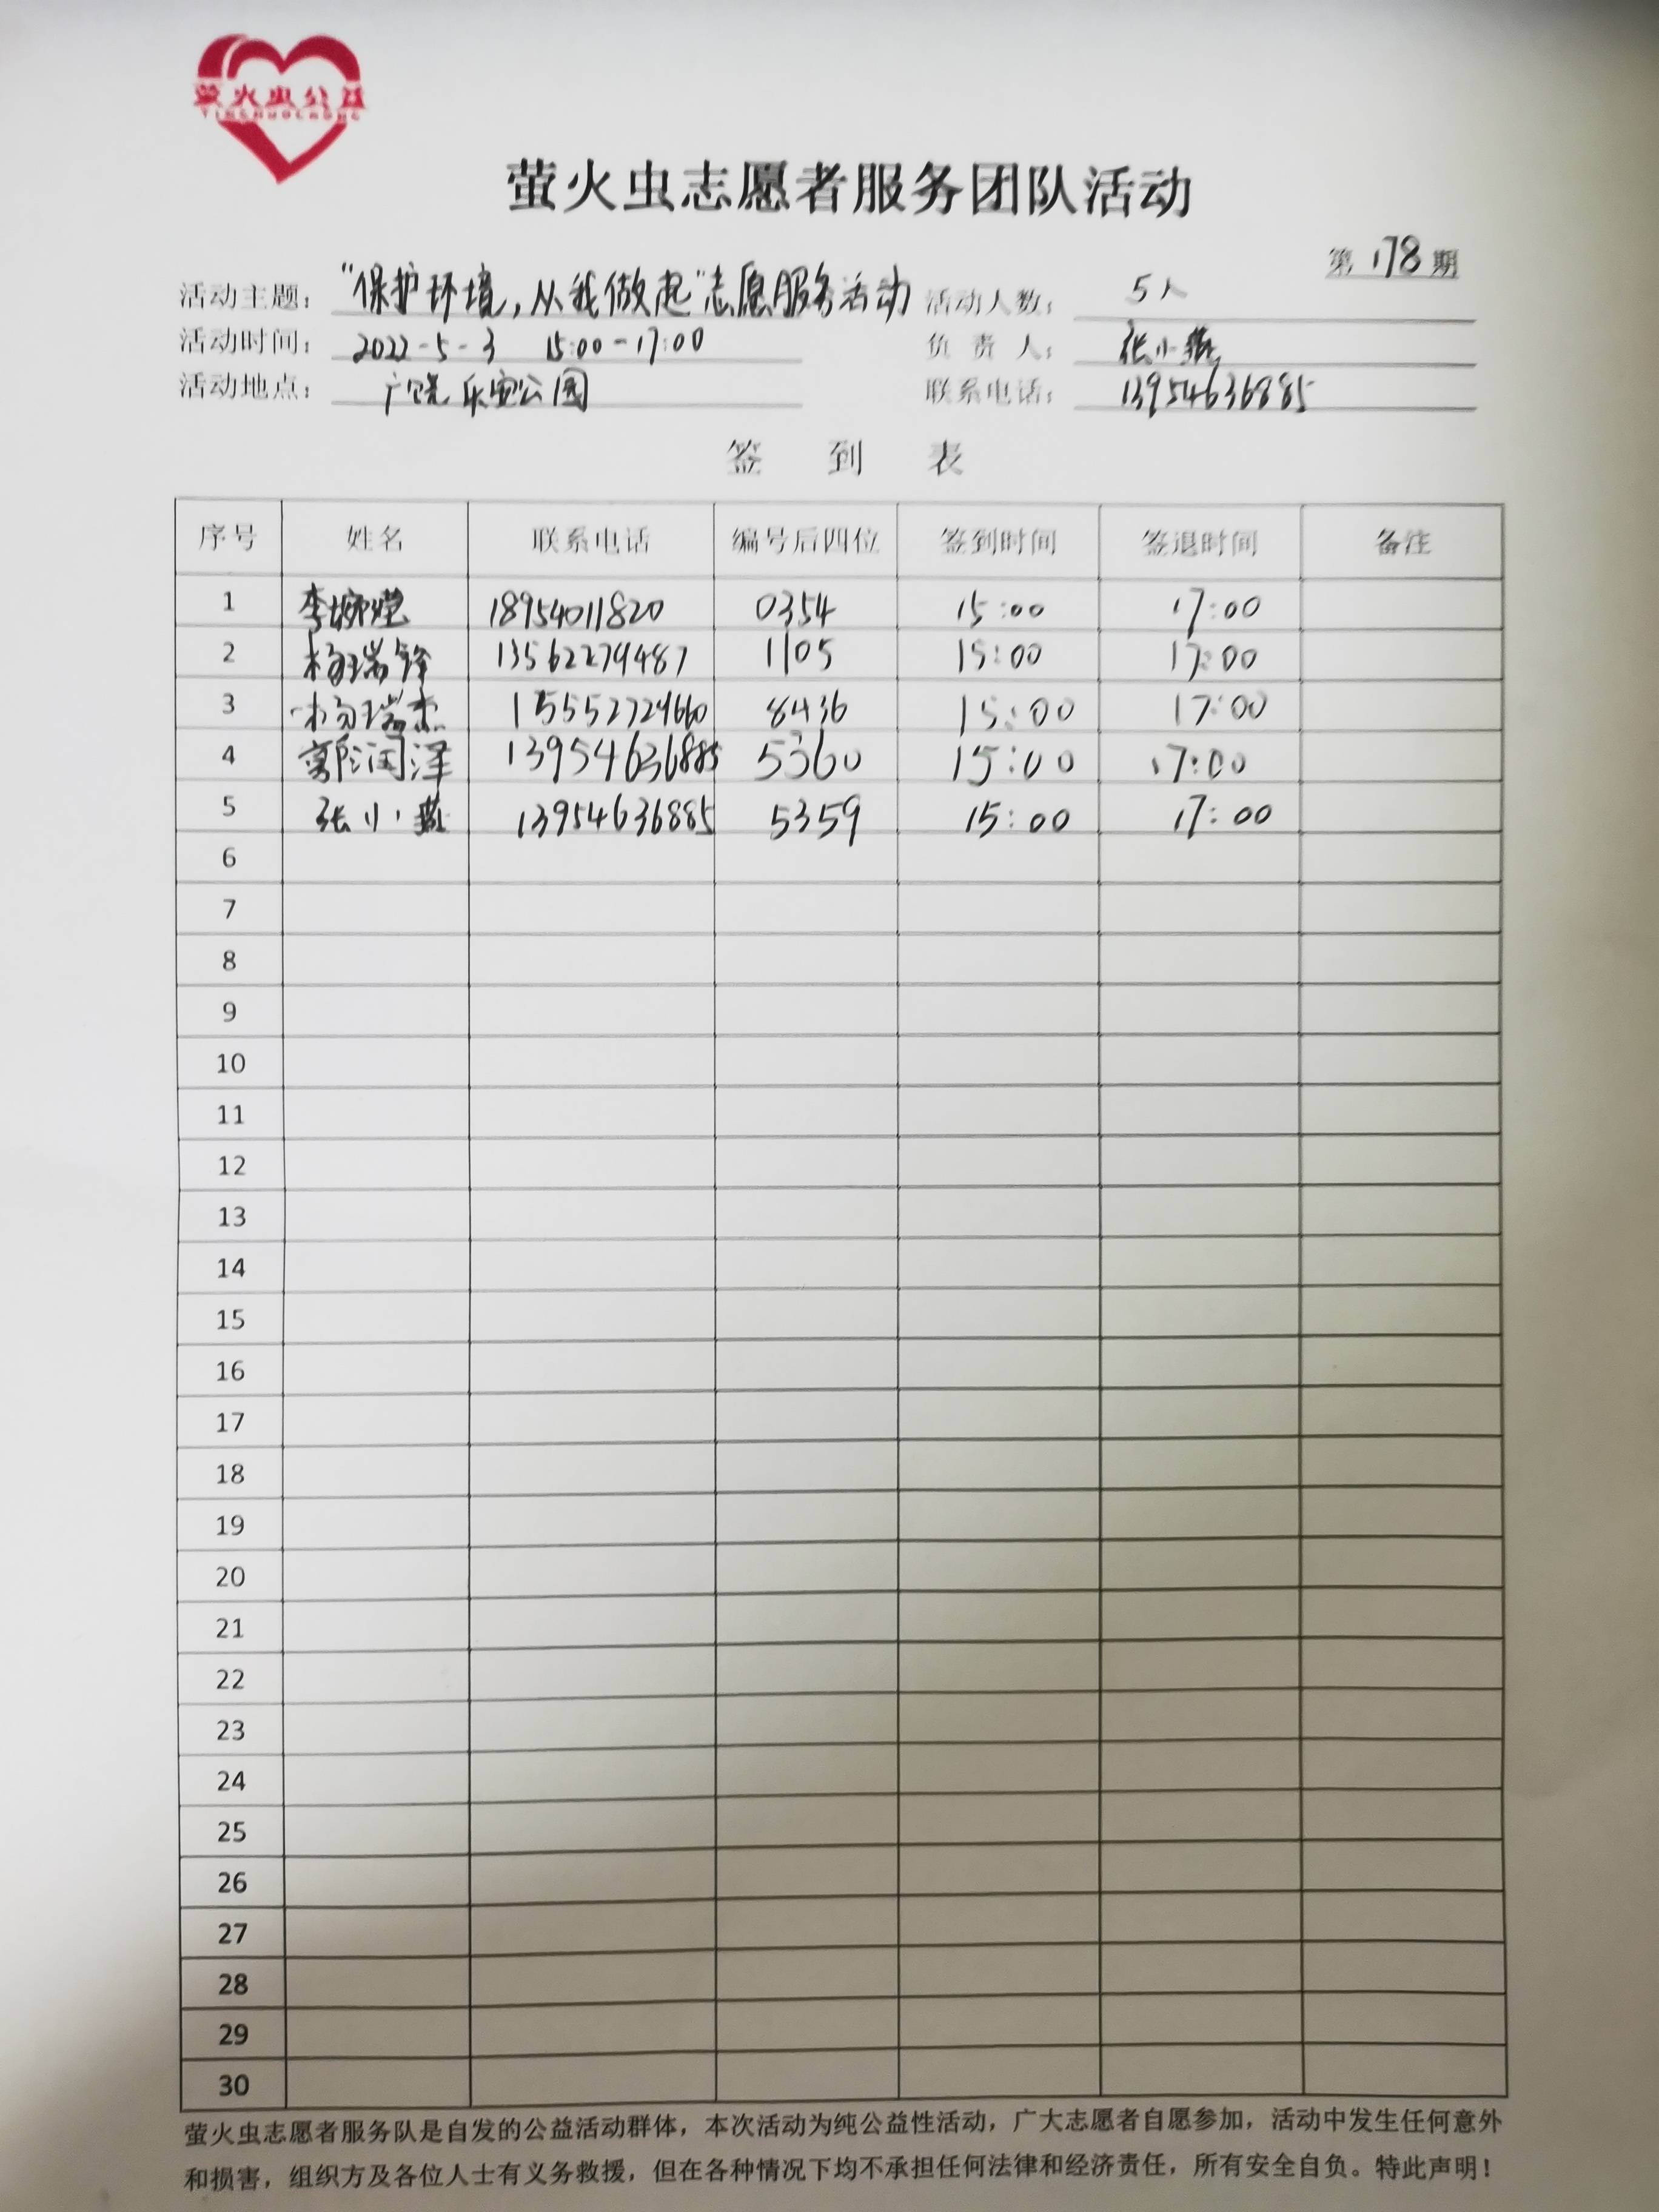 萤火虫公益
YINGHUOCHONG
萤火虫志愿者服务团队活动
第 178 期
活动主题： “保护环境，从我做起”志愿服务活动 活动人数： 5人
活动时间： 2022-5-3 15:00-17:00 负责人： 张小燕
活动地点： 广饶乐安公园 联系电话： 13954636885
签到表
序号 姓名 联系电话 编号后四位 签到时间 签退时间 备注
1 李 18954011820 0354 15:00 17:00
2 杨瑞锋 13562279487 1105 15:00 17:00
3 杨瑞杰 15552729660 8436 15:00 17:00
4 郭润泽 13954636885 5360 15:00 17:00
5 张小燕 13954636885 5359 15:00 17:00
6
7
8
9
10
11
12
13
14
15
16
17
18
19
20
21
22
23
24
25
26
27
28
29
30
萤火虫志愿者服务队是自发的公益活动群体，本次活动为纯公益性活动，广大志愿者自愿参加，活动中发生任何意外
和损害，组织方及各位人士有义务救援，但在各种情况下均不承担任何法律和经济责任，所有安全自负。特此声明！